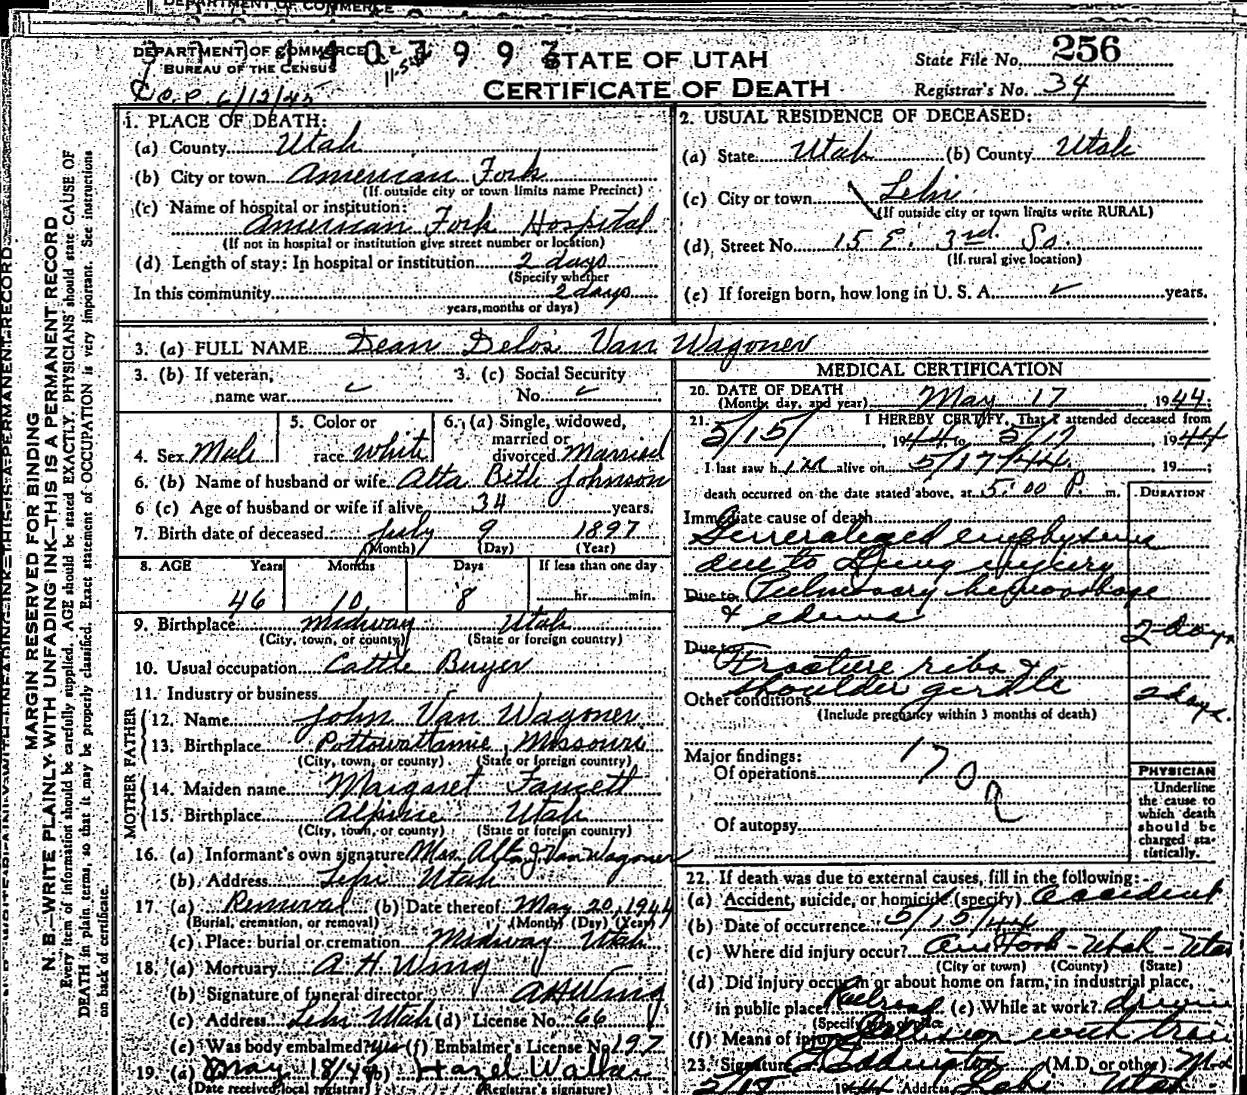 DEPARTMENT OF COMMERCE
DEPARTMENT OF COMMERCE
BUREAU OF THE CENSUS
STATE OF UTAH
CERTIFICATE OF DEATH
State File No. 256
Registrar's No. 34
6/12/45
MARGIN RESERVED FOR BINDING
N. B.—WRITE PLAINLY WITH UNFADING INK—THIS IS A PERMANENT RECORD
Every item of information should be carefully supplied. AGE should be stated EXACTLY. PHYSICIANS should state CAUSE OF
DEATH in plain terms, so that it may be properly classified. Exact statement of OCCUPATION is very important. See instructions
on back of certificate.
1. PLACE OF DEATH:
(a) County Utah
(b) City or town American Fork
(If outside city or town limits name Precinct)
(c) Name of hospital or institution:
American Fork Hospital
(If not in hospital or institution give street number or location)
(d) Length of stay: In hospital or institution 2 days
(Specify whether
In this community 2 days
years, months or days)
2. USUAL RESIDENCE OF DECEASED:
(a) State Utah (b) County Utah
(c) City or town Lehi
(If outside city or town limits write RURAL)
(d) Street No. 15 E. 3rd So.
(If rural give location)
(e) If foreign born, how long in U. S. A. ✓ years.
3. (a) FULL NAME Dean Delos Van Wagoner
3. (b) If veteran,
name war ✓
3. (c) Social Security
No. ✓
4. Sex Male
5. Color or
race white
6. (a) Single, widowed,
married or
divorced Married
6. (b) Name of husband or wife Alta Beth Johnson
6 (c) Age of husband or wife if alive 34 years.
7. Birth date of deceased July 9 1897
(Month) (Day) (Year)
8. AGE Years Months Days If less than one day
46 10 8 hr. min.
9. Birthplace Midway Utah
(City, town, or county) (State or foreign country)
10. Usual occupation Cattle Buyer
11. Industry or business
FATHER
12. Name John Van Wagoner
13. Birthplace Pottowattamie, Missouri
(City, town, or county) (State or foreign country)
MOTHER
14. Maiden name Margaret Fawcett
15. Birthplace Alpine Utah
(City, town, or country) (State or foreign country)
16. (a) Informant's own signature Mrs. Alta J. Van Wagoner
(b) Address Lehi Utah
17. (a) Removal (b) Date thereof May 20, 1944
(Burial, cremation, or removal) (Month) (Day) (Year)
(c) Place: burial or cremation Midway Utah
18. (a) Mortuary A H Wing
(b) Signature of funeral director AH Wing
(c) Address Lehi Utah (d) License No. 66
(e) Was body embalmed? yes (f) Embalmer's License No. 197
19. (a) May 18/44 (b) Hazel Walker
(Date received local registrar) (Registrar's signature)
MEDICAL CERTIFICATION
20. DATE OF DEATH
(Month, day, and year) May 17 1944;
21. I HEREBY CERTIFY, That I attended deceased from
5/15/ 1944 to 5/17 1944
I last saw him alive on 5/17/44 19
death occurred on the date stated above, at 5:00 P. m.
DURATION
Immediate cause of death
Generalized emphysema
due to Lung injury
Due to Pulmonary hemorrhage
& edema 2 days
Due to
Fracture ribs &
shoulder gerdle 2 days.
Other conditions
(Include pregnancy within 3 months of death)
Major findings:
Of operations
170
Of autopsy
PHYSICIAN
Underline
the cause to
which death
should be
charged sta-
tistically.
22. If death was due to external causes, fill in the following:
(a) Accident, suicide, or homicide (specify) Accident
(b) Date of occurrence 5/15/44
(c) Where did injury occur? Am Fork - Utah - Utah
(City or town) (County) (State)
(d) Did injury occur in or about home on farm, in industrial place,
in public place? Railroad (e) While at work?
(Specify type of place
(f) Means of injury with train
23. Signature (M.D. or other) M.D.
1944 Address Lehi Utah